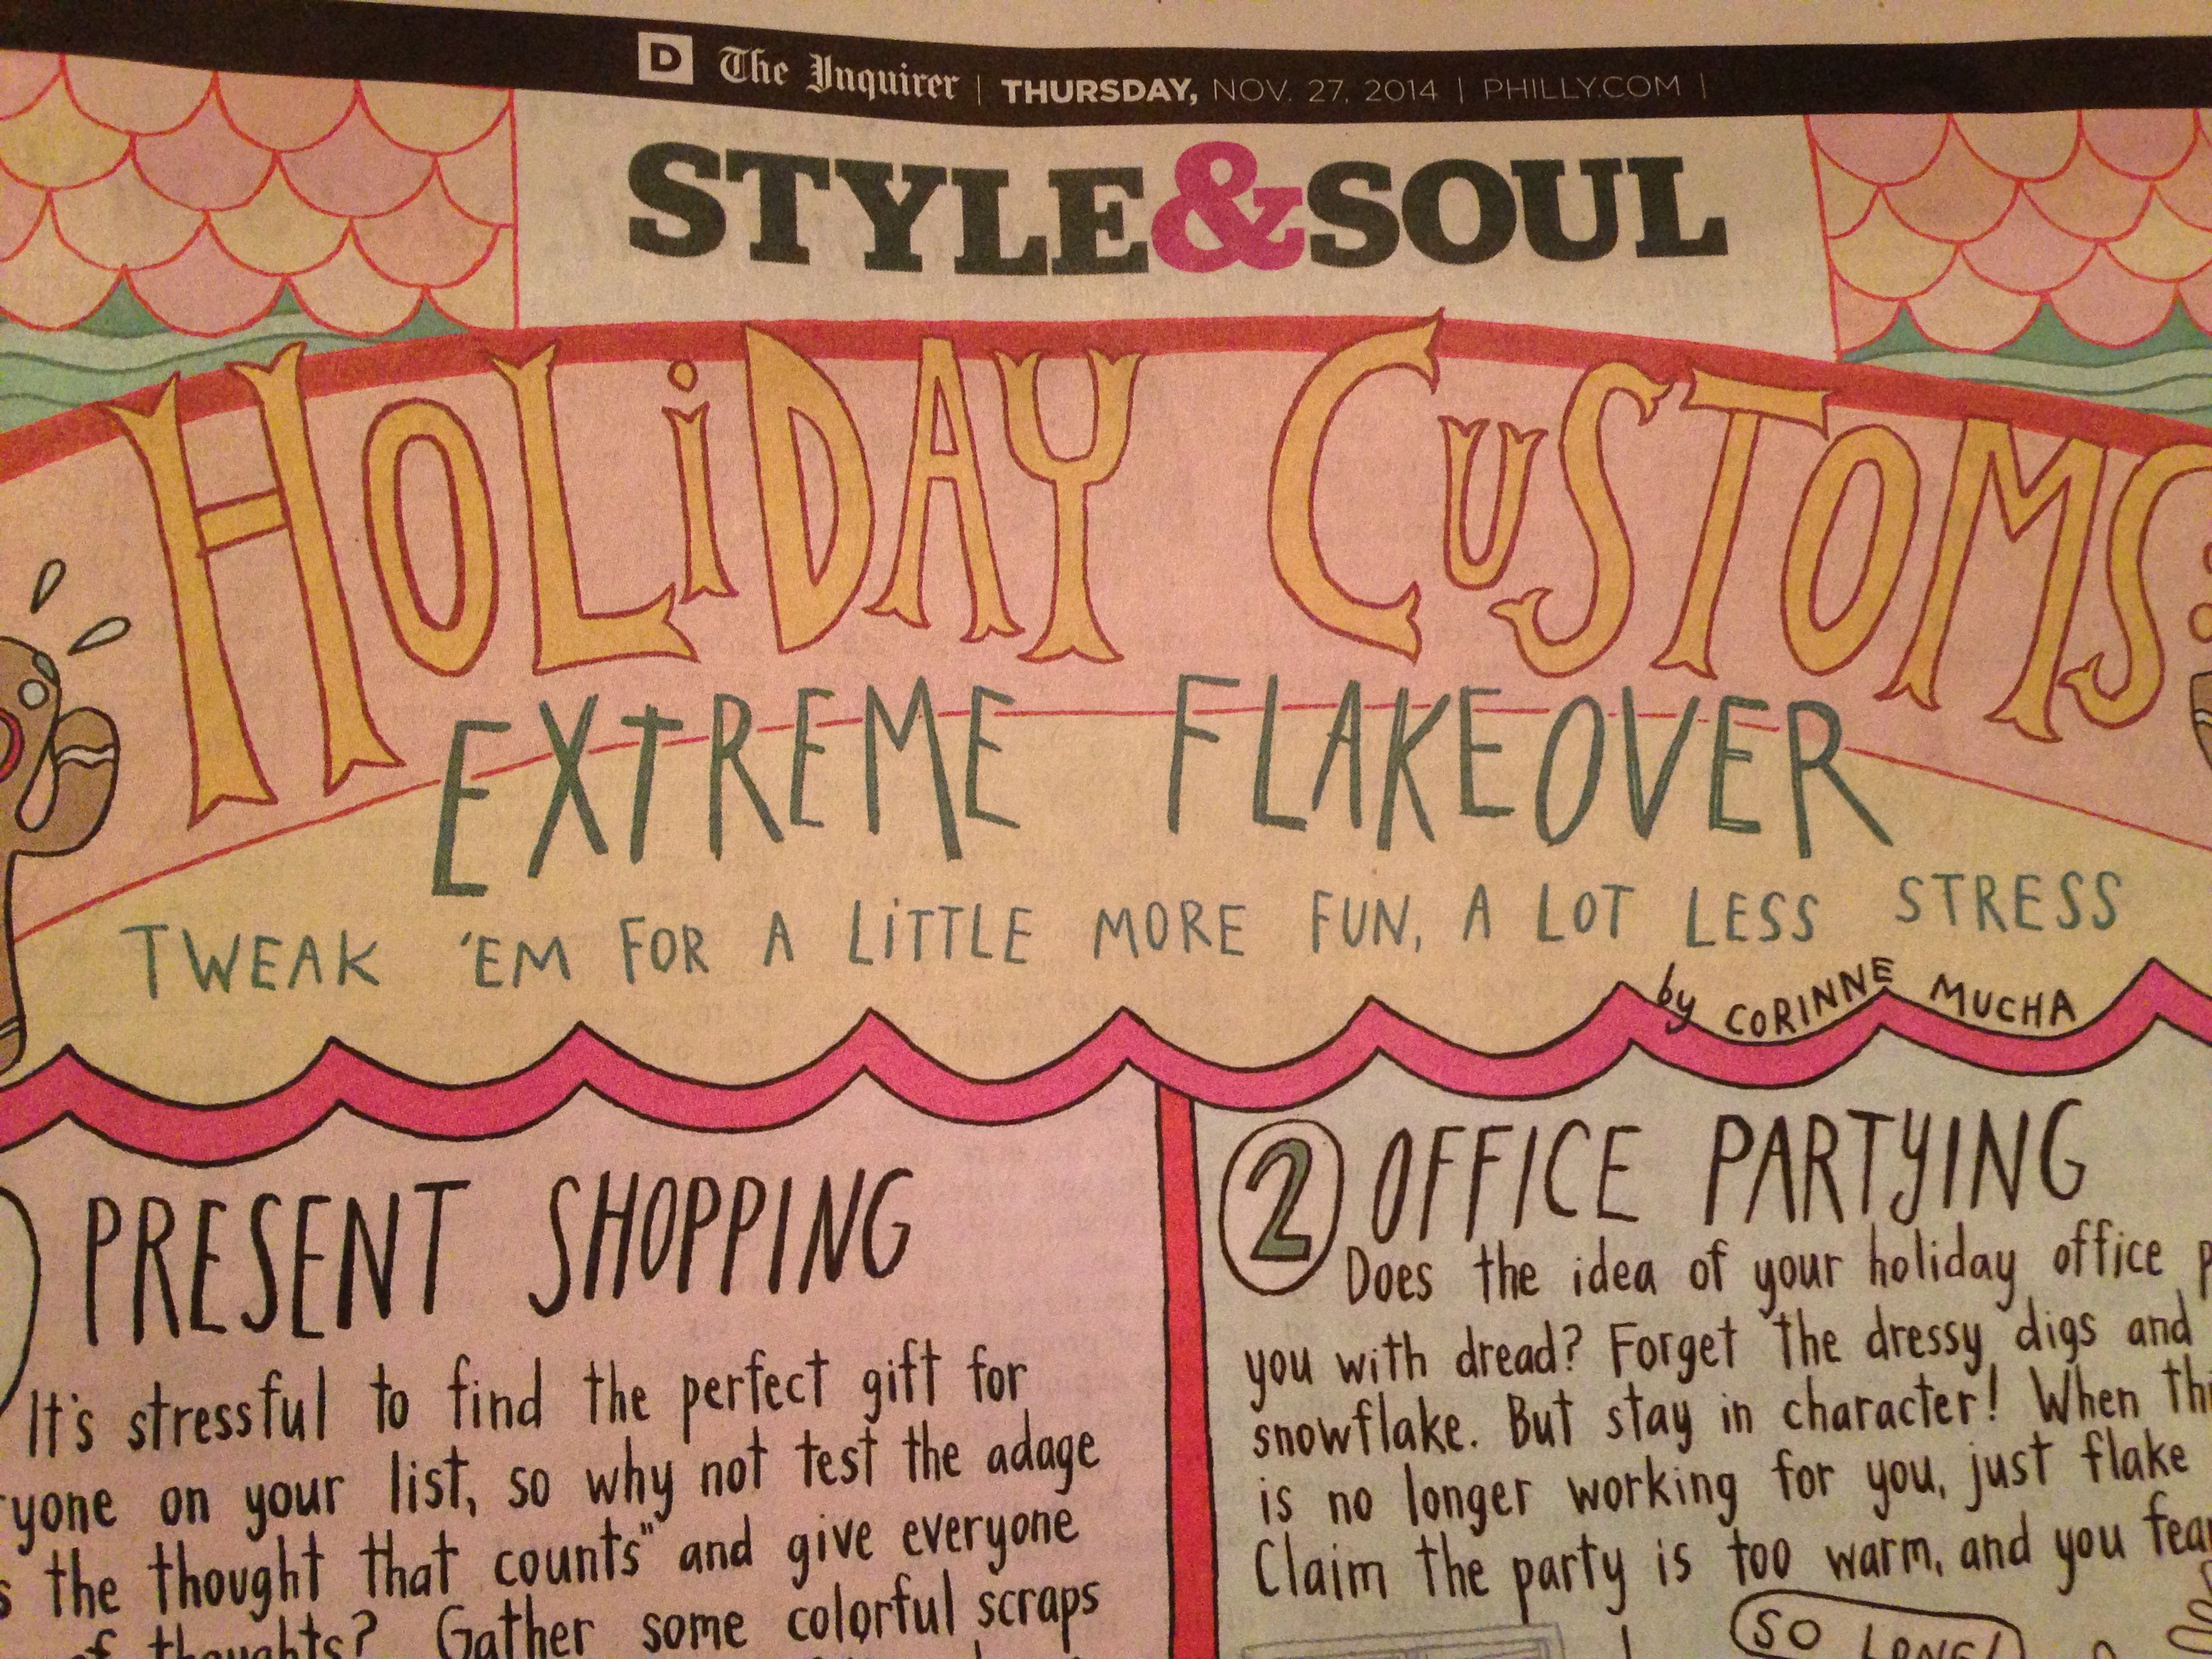 D The Inquirer | THURSDAY, NOV. 27, 2014 | PHILLY.COM |
STYLE&SOUL
HOLiDAY CuSTOMS
EXTREME FLAKEOVER
TWEAK 'EM FOR A LiTTLE MORE FUN, A LOT LESS STRESS
by CORINNE MUCHA
PRESENT SHOPPING
It's stressful to find the perfect gift for
ryone on your list, so why not test the adage
s the thought that counts" and give everyone
of thoughts? Gather some colorful scraps
2 OFFICE PARTYING
Does the idea of your holiday office p
you with dread? Forget the dressy digs and
snowflake. But stay in character! When thi
is no longer working for you, just flake
Claim the party is too warm, and you fear
SO LONG!